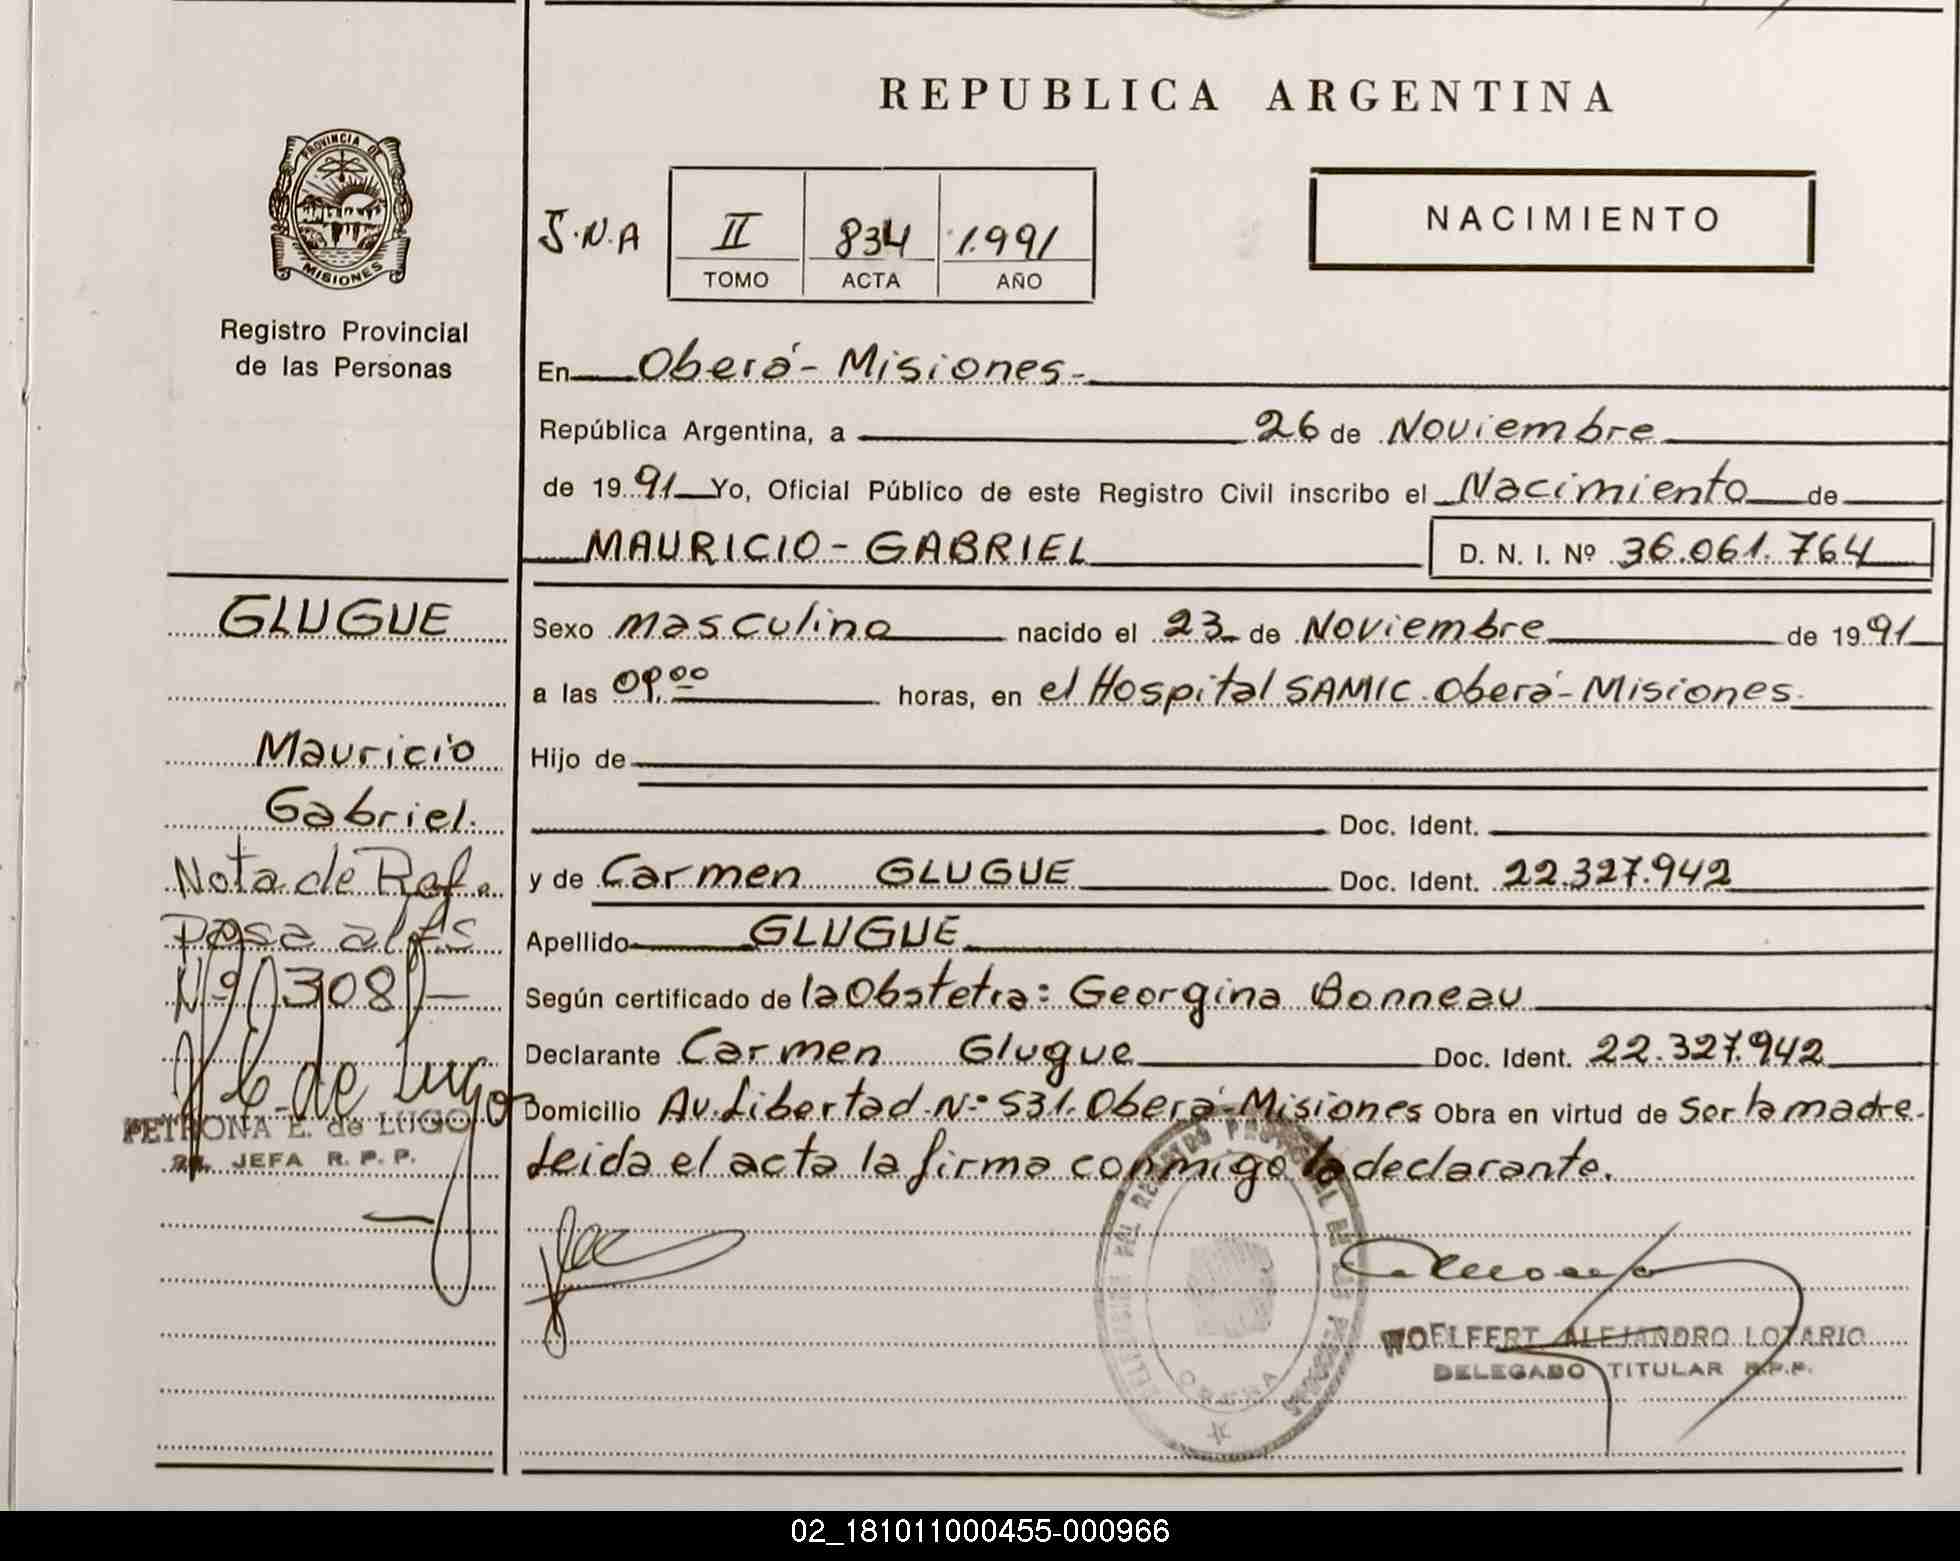 REPUBLICA ARGENTINA
PROVINCIA DE
MISIONES
Registro Provincial
de las Personas
S.N.A II 834 1.991
TOMO ACTA AÑO
NACIMIENTO
En Oberá - Misiones.-
República Argentina, a 26 de Noviembre
de 1991 Yo, Oficial Público de este Registro Civil inscribo el Nacimiento de
MAURICIO - GABRIEL D. N. I. Nº 36.061.764
GLUGUE
Mauricio
Gabriel.
Nota de Ref.
Pasa al fs
Nº 308
PETRONA E. de LUGO
2a. JEFA R. P. P.
Sexo masculino nacido el 23 de Noviembre de 1991
a las 09,00 horas, en el Hospital SAMIC. Oberá - Misiones.
Hijo de
Doc. Ident.
y de Carmen GLUGUE Doc. Ident. 22.327.942
Apellido GLUGUE
Según certificado de la Obstetra: Georgina Bonneau
Declarante Carmen Glugue Doc. Ident. 22.327.942
Domicilio Av. Libertad Nº 531. Oberá - Misiones Obra en virtud de ser la madre.
Leida el acta la firma conmigo la declarante.
WOELFERT ALEJANDRO LOTARIO
DELEGADO TITULAR R.P.P.
02_181011000455-000966